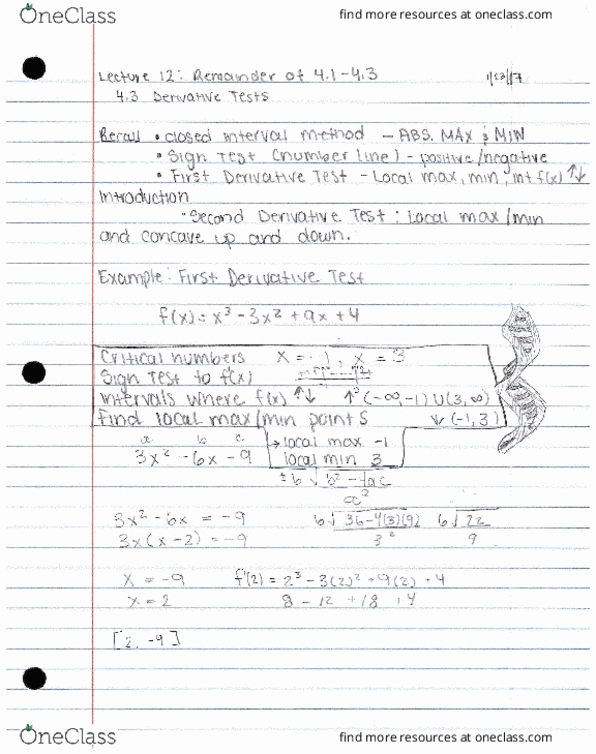 OneClass
find more resources at oneclass.com
Lecture 12: Remainder of 4.1-4.3
4.3 Derivative Tests
Recall • closed interval method - ABS. MAX & MIN
• Sign Test (number line) - positive/negative
• First Derivative Test - Local max, min, int f(x) ↑↓
Introduction
• Second Derivative Test: local max/min
and concave up and down.
Example: First Derivative Test
f(x) = x³ - 3x² + 9x + 4
Critical numbers x = -1, x = 3
Sign Test to f'(x)
Intervals where f(x) ↑↓ ↑ (-∞, -1) U (3, ∞)
Find local max/min points ↓ (-1, 3)
→ local max -1
local min 3
a b c
3x² - 6x - 9
± b √b² - 4ac
3x² - 6x = -9 6√36-4(3)(9) 6√72
3x(x - 2) = -9 9
x = -9 f'(2) = 2³ - 3(2)² + 9(2) + 4
x = 2 8 - 12 + 18 + 4
[2, -9]
OneClass
find more resources at oneclass.com